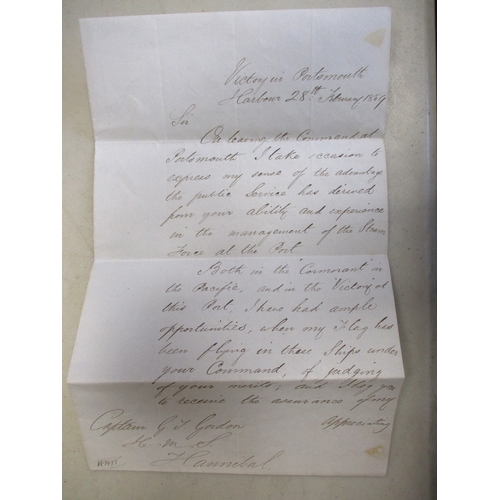 Victory in Portsmouth
Harbour 28th February 1849
Sir
On leaving the Command at
Portsmouth I take occasion to
express my sense of the advantage
the public Service has derived
from your ability and experience
in the management of the Steam
Force at the Port.
Both in the "Cormorant" in
the Pacific, and in the Victory at
this Port, I have had ample
opportunities, when my Flag has
been flying in these Ships under
your Command, of judging
of your merits; and I beg you
to receive the assurance of my
appreciating
Captain G T Gordon
H. M. S
Hannibal